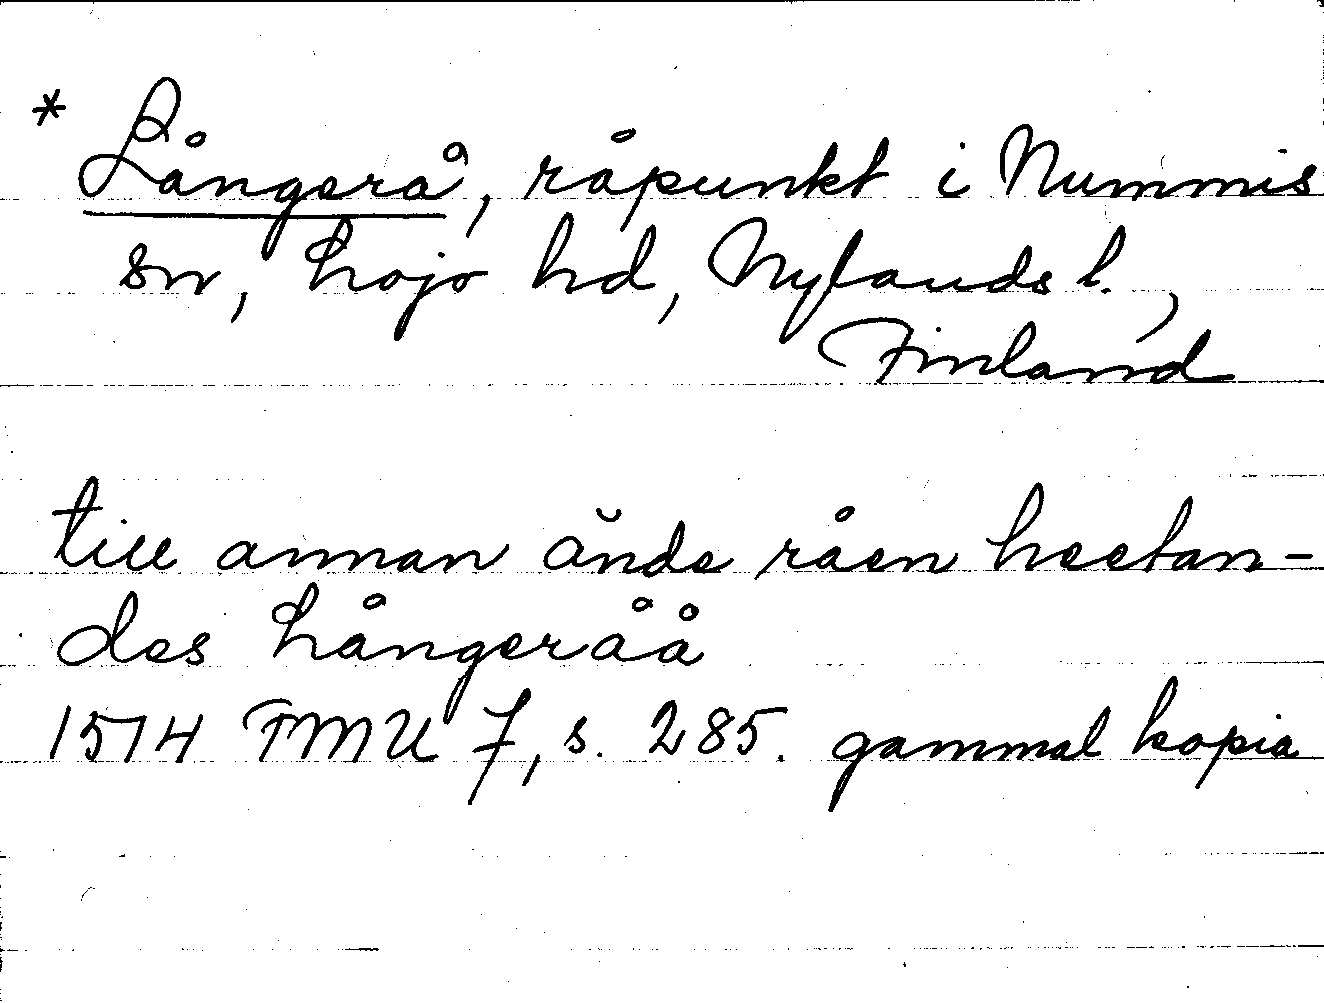 * Långerå, råpunkt i Nummis
sn, Lojo hd, Nylands l.,
Finland
till annan ände råen heetan-
des Långeråå
1514 FMU 7, s. 285. gammal kopia